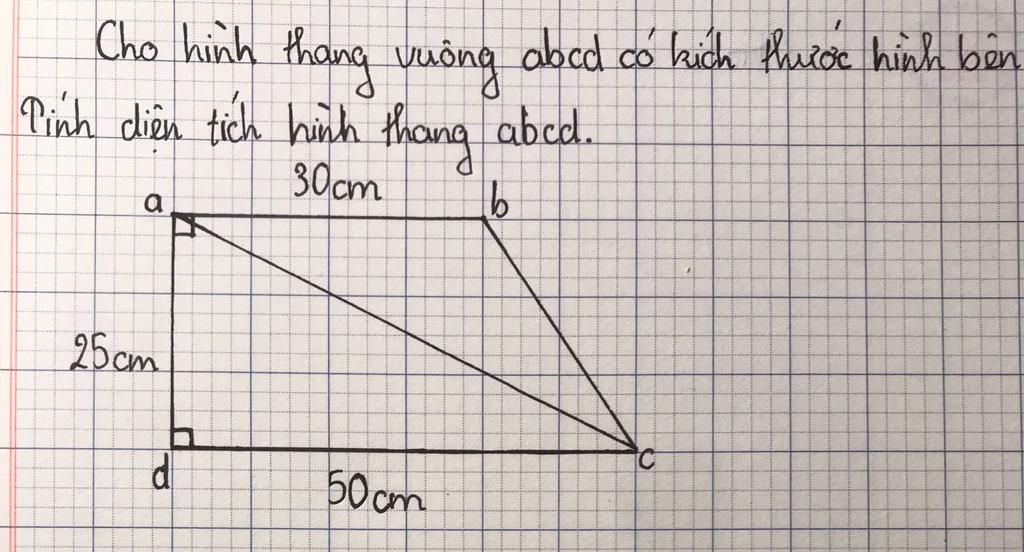 Cho hình thang vuông abcd có kích thước hình bên
Tính diện tích hình thang abcd.
30cm
a
b
25cm
d
c
50cm